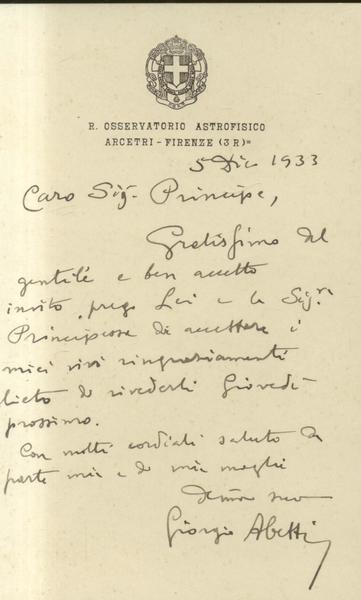 R. OSSERVATORIO ASTROFISICO
ARCETRI - FIRENZE (3R)
5 Dic 1933
Caro Sig. Principe,
Gratissimo del
gentile e ben accetto
invito, prego Lei e la Sig.ra
Principessa di accettare i
miei vivi ringraziamenti
lieto di rivederli Giovedì
prossimo.
Con molti cordiali saluti da
parte mia e di mia moglie
suo
Giorgio Abetti